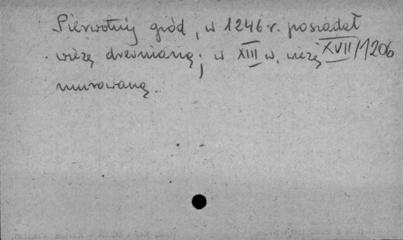 Pierwotnij gród, w 1246 r. posiadał
wieżę drewnianą; w XIII w. wieżę XVII/1206
murowaną.